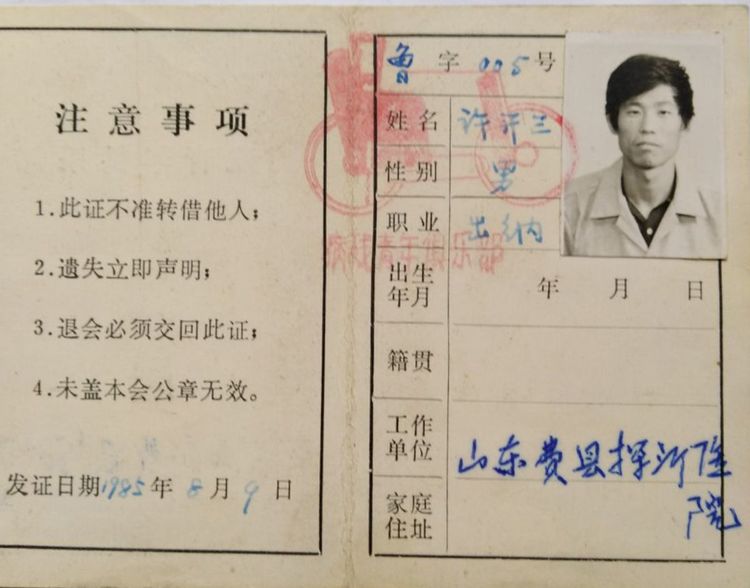 注意事项
1.此证不准转借他人;
2.遗失立即声明;
3.退会必须交回此证;
4.未盖本会公章无效。
发证日期1985年8月9日
鲁字005号
姓名 许 兰
性别 男
职业 出纳
出生年月 年 月 日
籍贯
工作单位 山东费县探沂医院
家庭住址
青年俱乐部